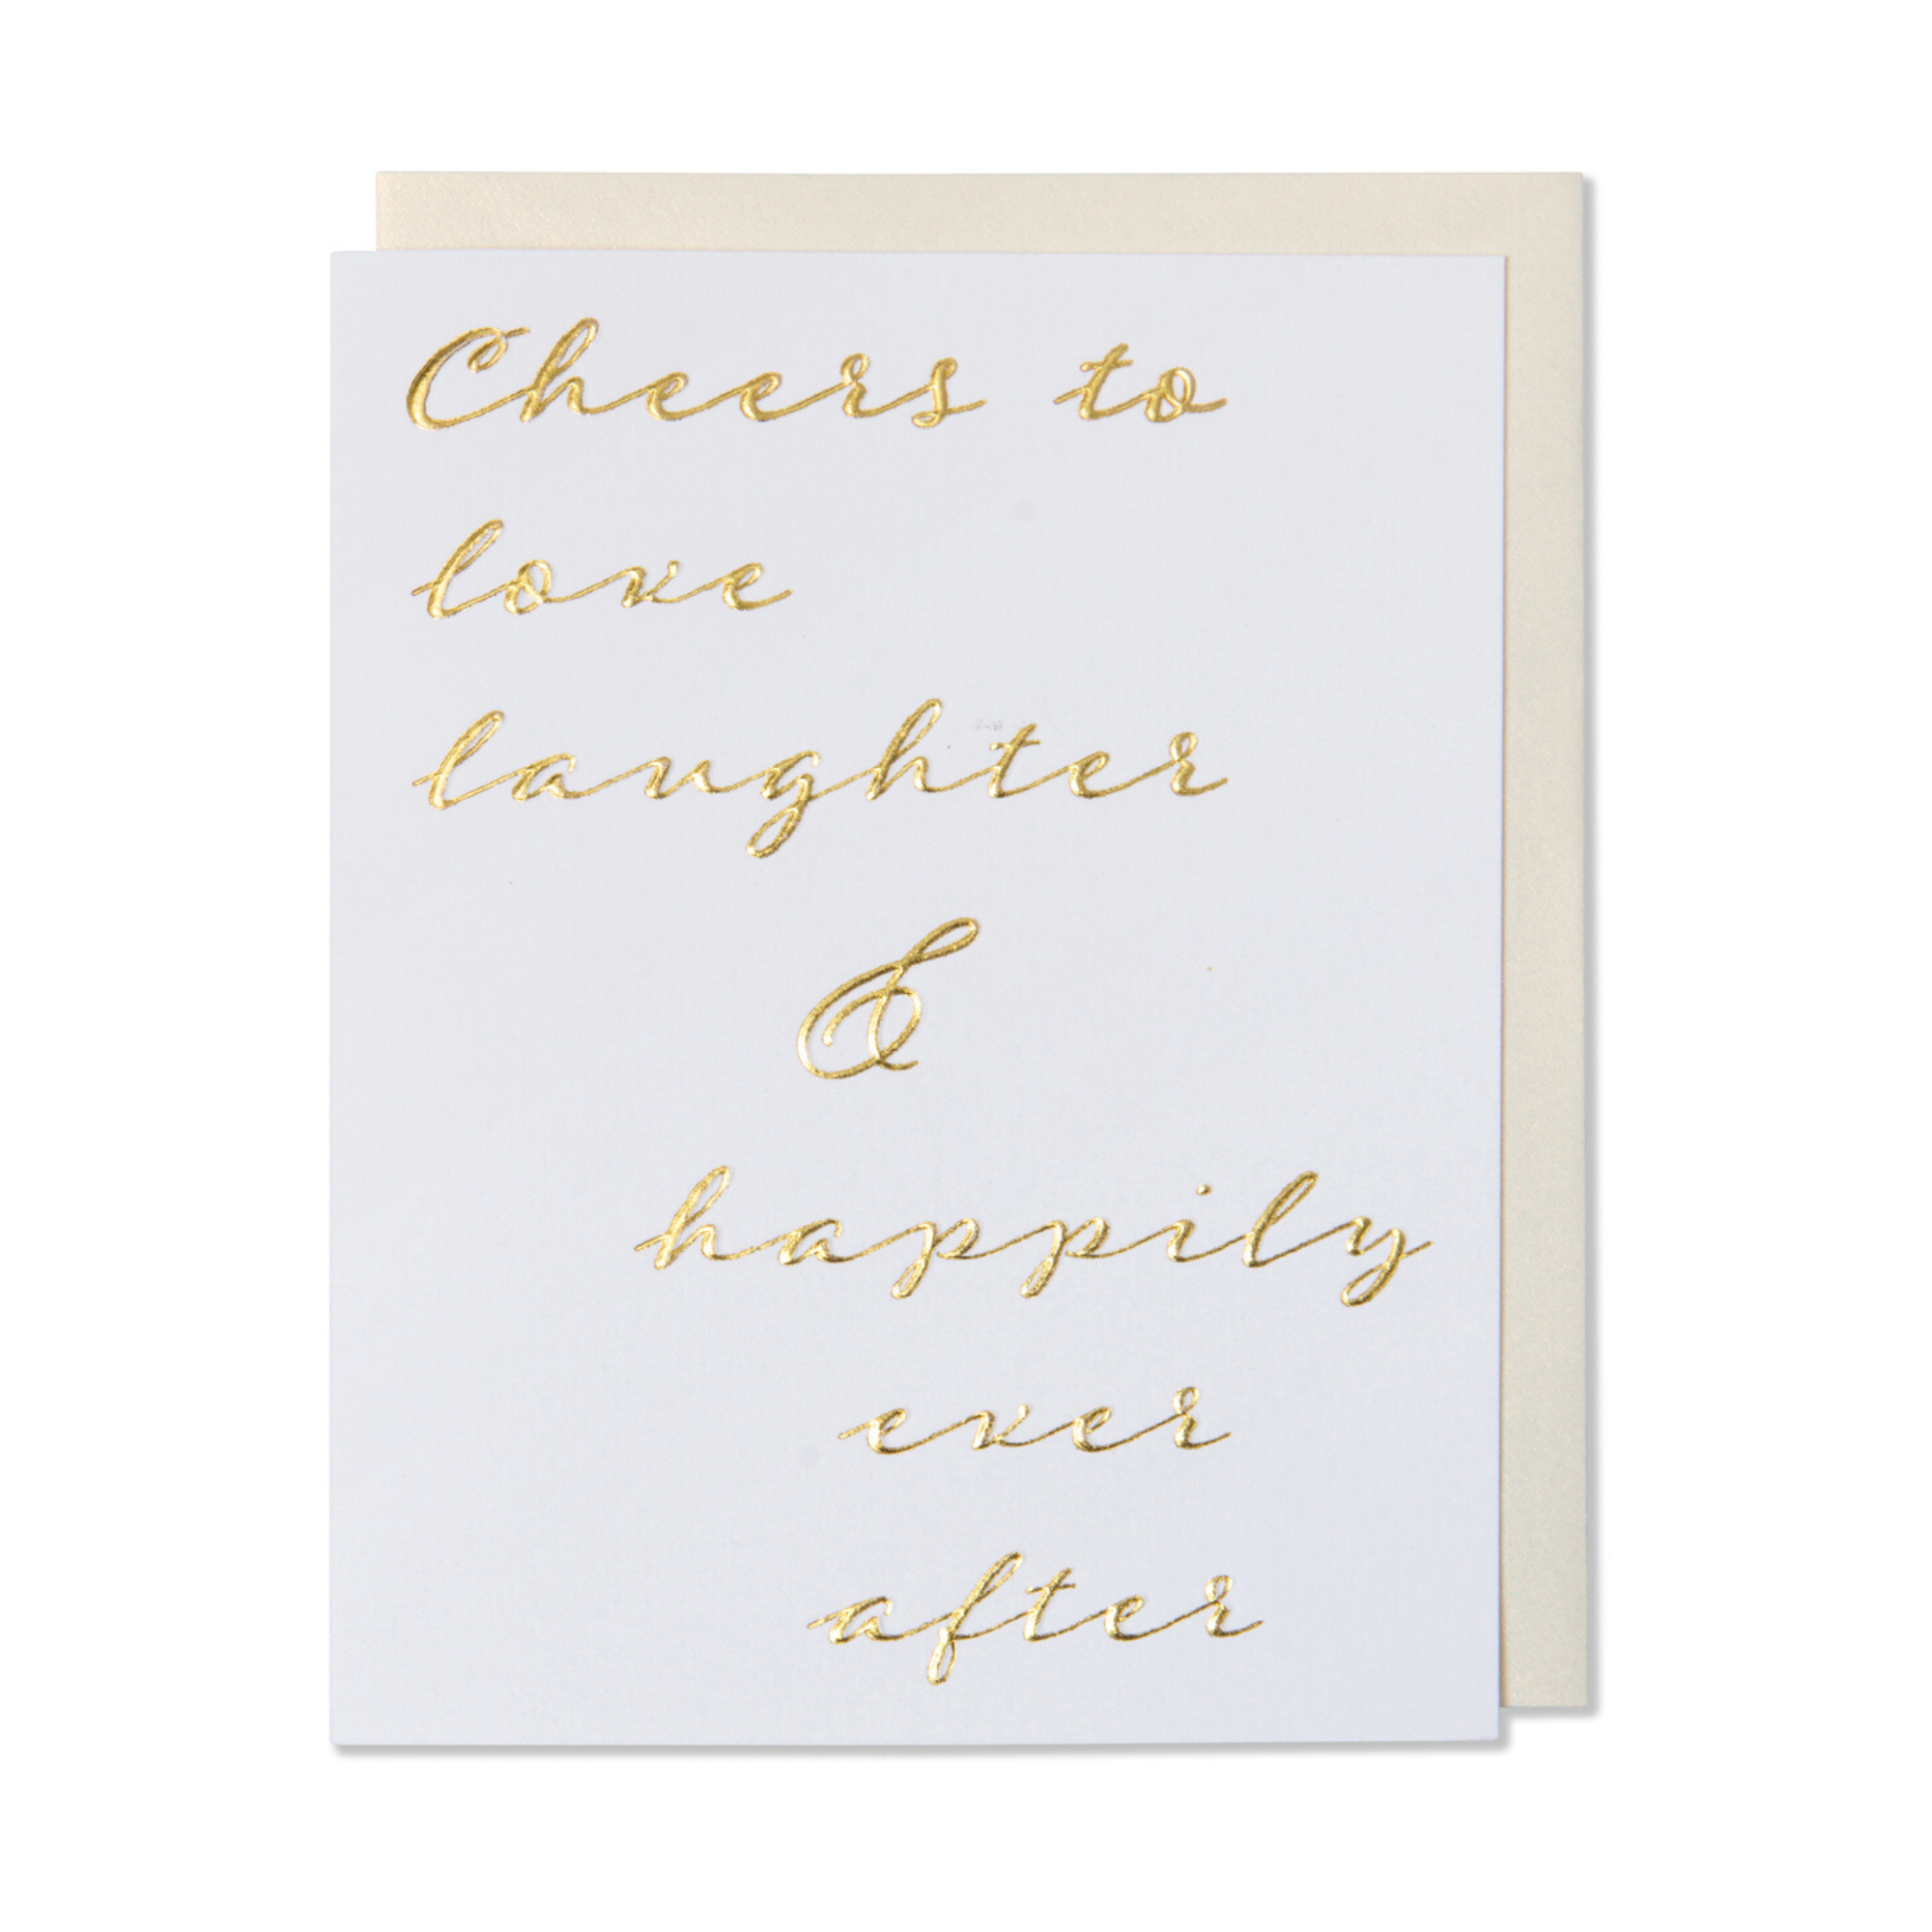 Cheers to
love
laughter
&
happily
ever
after